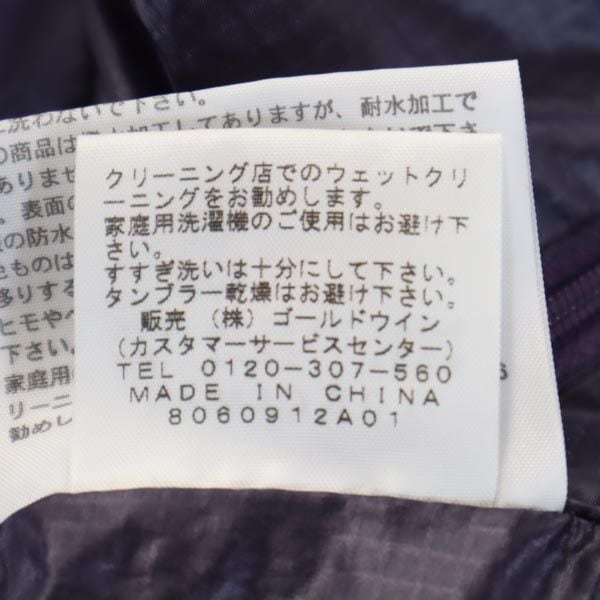 洗わないで下さい。
の商品は
加工してありますが、耐水加工で
ありませ
。表面の
の防水
ものは
移りする
ヒモやベ
下さい。
家庭用
リーニ
勧めし
クリーニング店でのウェットクリ
ーニングをお勧めします。
家庭用洗濯機のご使用はお避け下
さい。
すすぎ洗いは十分にして下さい。
タンブラー乾燥はお避け下さい。
販売 (株) ゴールドウイン
(カスタマーサービスセンター)
TEL 0120-307-560
MADE IN CHINA
8060912A01
6